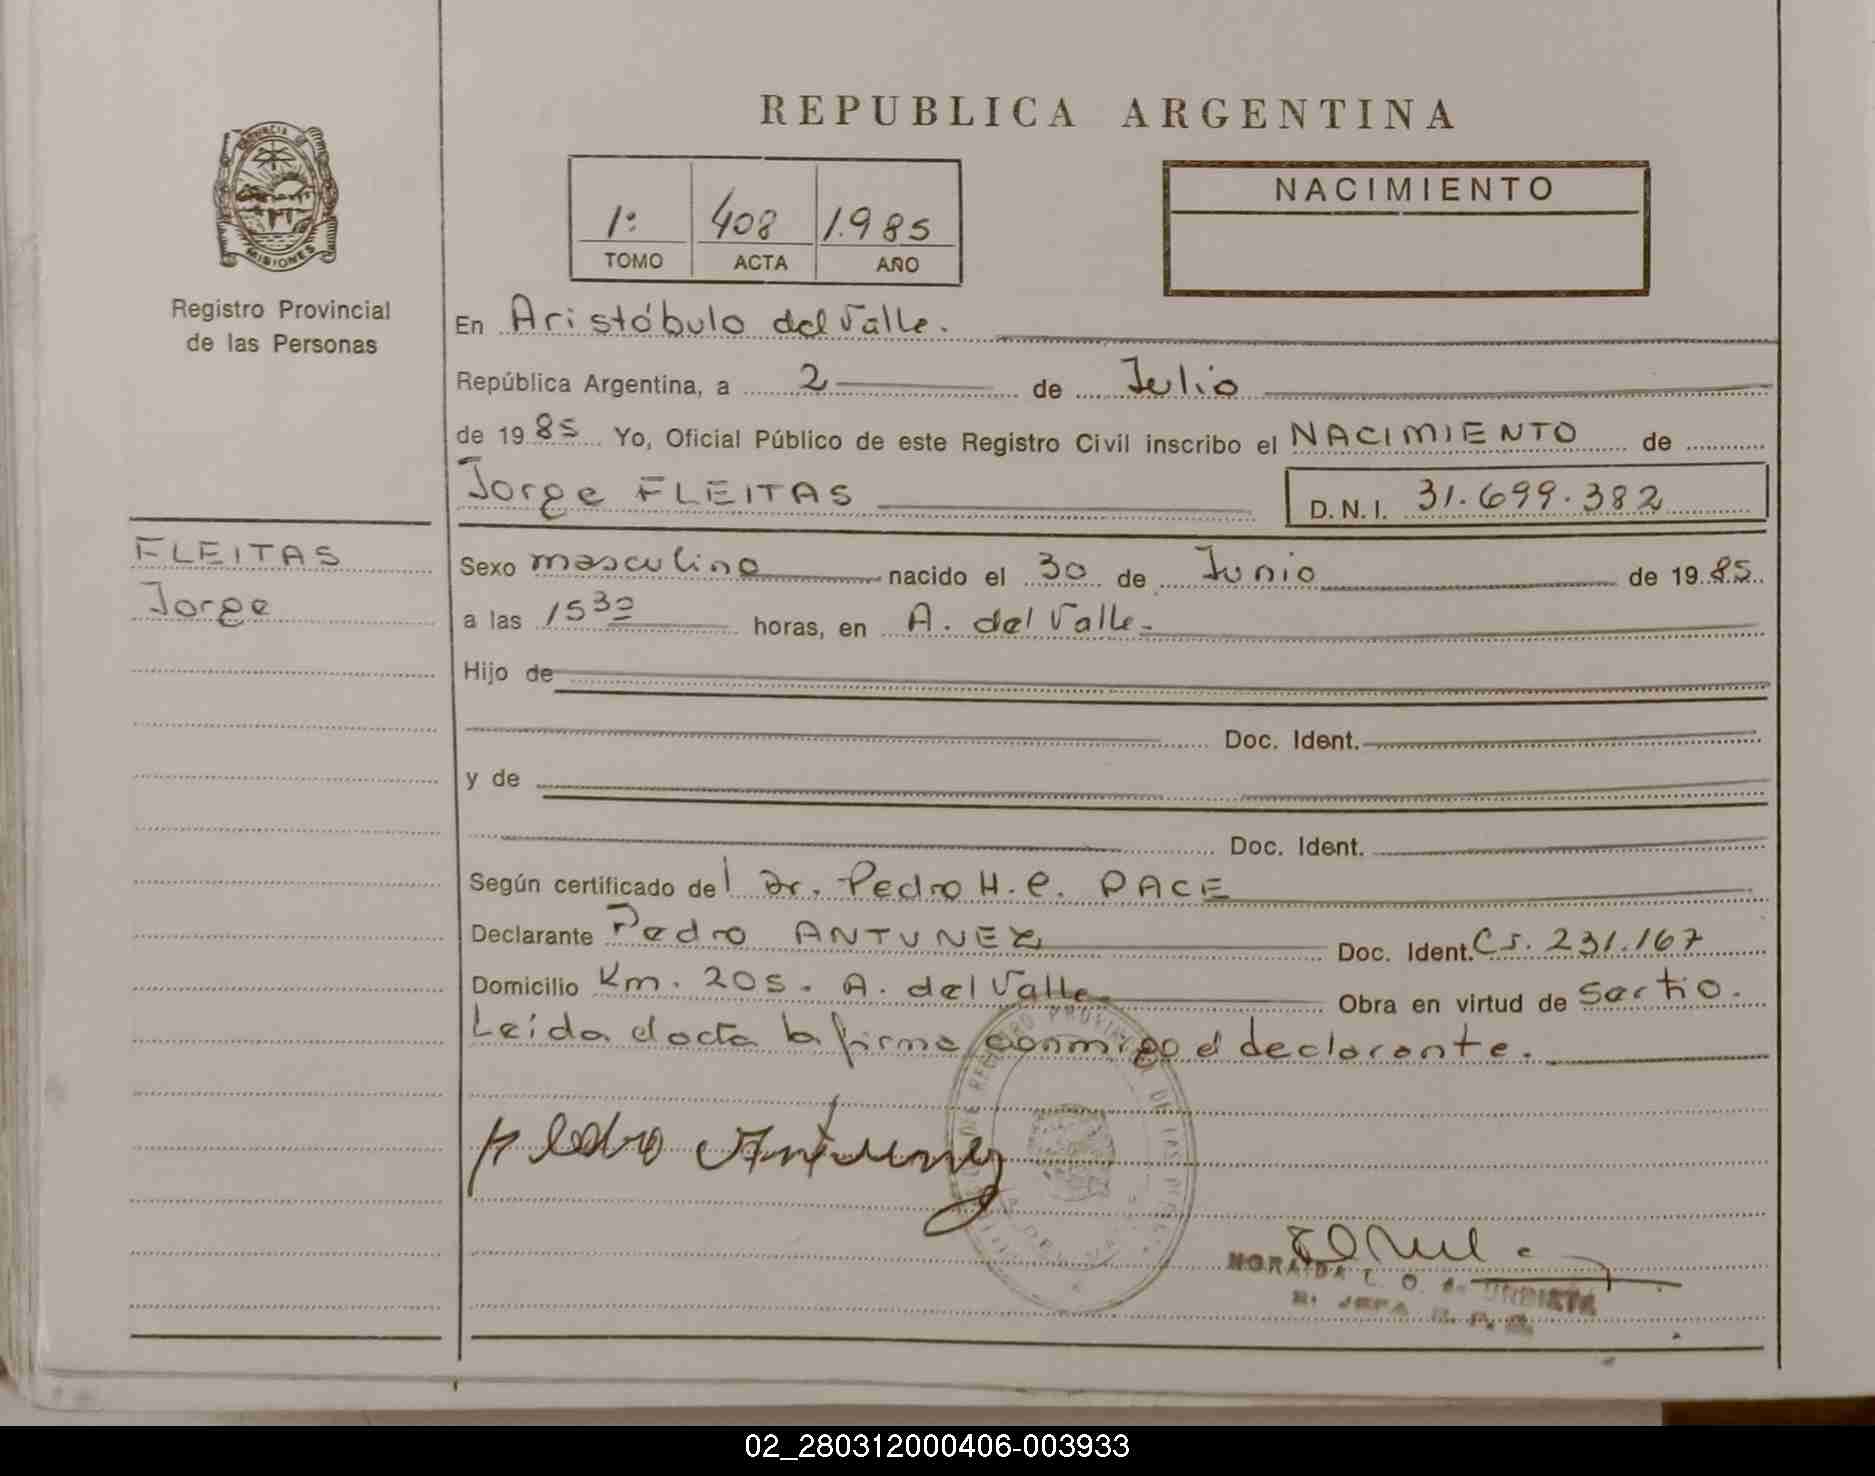 REPUBLICA ARGENTINA
PROVINCIA
MISIONES
Registro Provincial
de las Personas
1: 408 1.985
TOMO ACTA AÑO
NACIMIENTO
En Aristóbulo del Valle.
República Argentina, a 2 de Julio
de 1985 Yo, Oficial Público de este Registro Civil inscribo el NACIMIENTO de
Jorge FLEITAS D.N.I. 31.699.382
FLEITAS
Jorge
Sexo masculino nacido el 30 de Junio de 1985
a las 15 30 horas, en A. del Valle.
Hijo de
Doc. Ident.
y de
Doc. Ident.
Según certificado del Dr. Pedro H. C. PACE
Declarante Pedro ANTUNEZ Doc. Ident. Cs. 231.167
Domicilio Km. 205. A. del Valle. Obra en virtud de
Leída el acta la firma conmigo el declarante.
REGISTRO PROVINCIAL DE LAS
Pedro Antunez
NORAIDA L. O. de URBIETA
JEFA R. P. P.
02_280312000406-003933